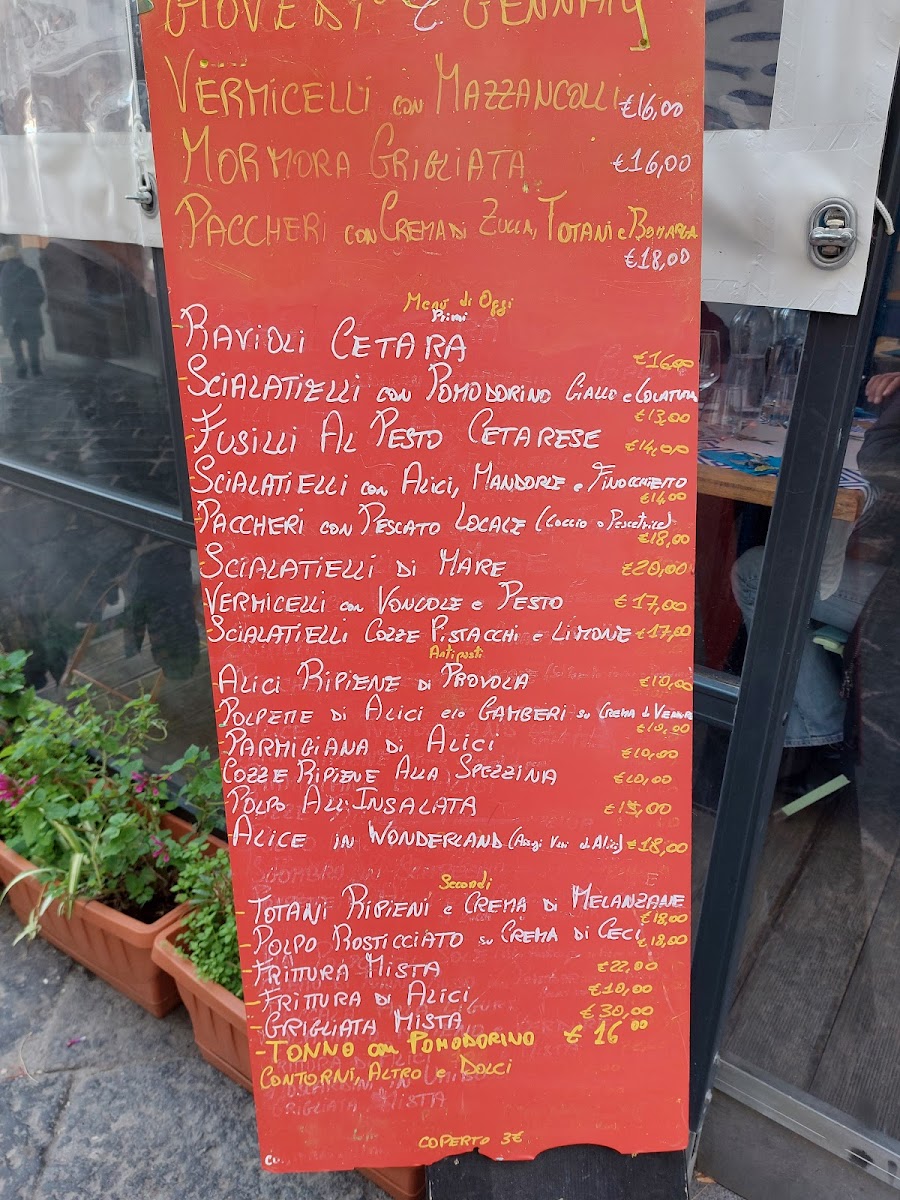 GIOVEDI' 2 GENNAIO
VERMICELLI CON MAZZANCOLLI €16,00
MORMORA GRIGLIATA €16,00
PACCHERI CON CREMA DI ZUCCA, TOTANI e
€18,00
Menu di Oggi
Primi
- RAVIOLI CETARA
€16,00
- SCIALATIELLI con POMODORINO GIALLO e COLATURA
€13,00
- FUSILLI AL PESTO CETARESE €14,00
- SCIALATIELLI con ALICI, MANDORLE e FINOCCHIETTO
€14,00
- PACCHERI con PESCATO LOCALE (Coccio o Pescatrice)
€18,00
- SCIALATIELLI DI MARE €20,00
- VERMICELLI con VONGOLE e PESTO €17,00
- SCIALATIELLI COZZE PISTACCHI e LIMONE €17,00
Antipasti
- ALICI RIPIENE DI PROVOLA €10,00
- POLPETTE DI ALICI e/o GAMBERI su CREMA di
€10,00
- PARMIGIANA DI ALICI €10,00
- COZZE RIPIENE ALLA SPEZZINA €10,00
- POLPO ALL'INSALATA €15,00
- ALICE IN WONDERLAND (Assaggi Vari di Alici) €18,00
Secondi
- TOTANI RIPIENI e CREMA DI MELANZANE
€18,00
- POLPO ROSTICCIATO su CREMA DI CECI €18,00
- FRITTURA MISTA €22,00
- FRITTURA DI ALICI €10,00
- GRIGLIATA MISTA €30,00
- TONNO con POMODORINO € 16,00
CONTORNI, ALTRO e DOLCI
GRIGLIATA MISTA
COPERTO 3€